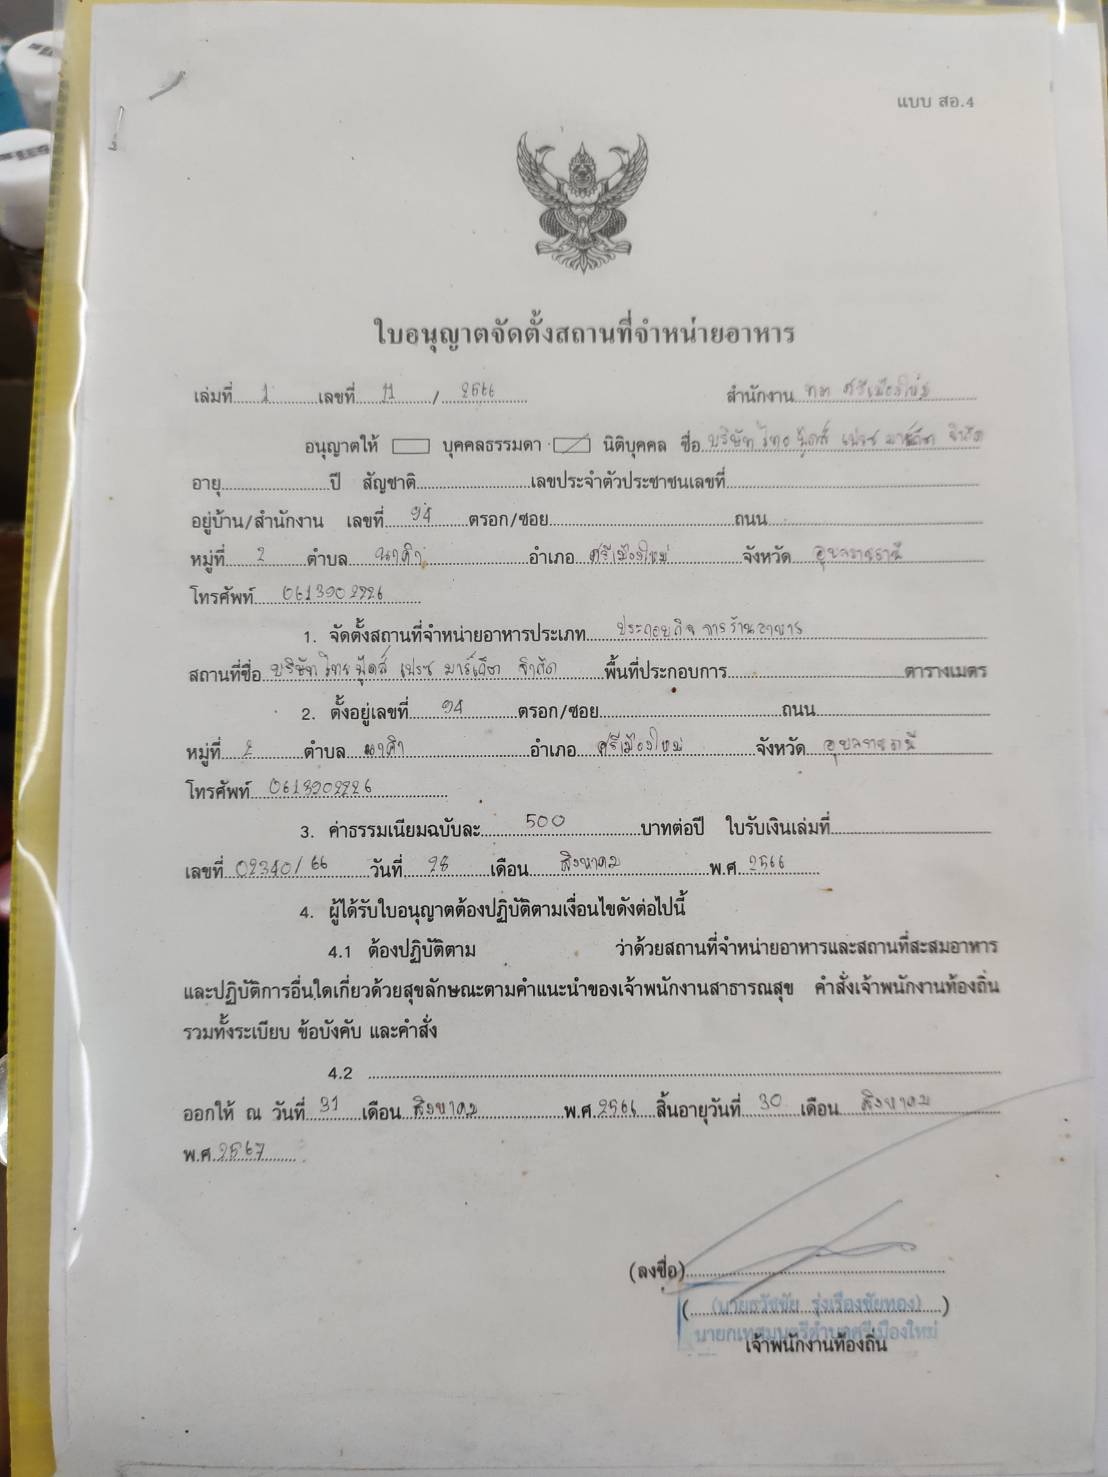 แบบ สอ.4
ใบอนุญาตจัดตั้งสถานที่จำหน่ายอาหาร
เล่มที่ 1 เลขที่ 11 / 2566 สำนักงาน ทต ศรีเมืองใหม่
อนุญาตให้ บุคคลธรรมดา นิติบุคคล ชื่อ บริษัท ไทย ฟู้ดส์ เฟรช มาร์เก็ต จำกัด
อายุ ปี สัญชาติ เลขประจำตัวประชาชนเลขที่
อยู่บ้าน/สำนักงาน เลขที่ 94 ตรอก/ซอย ถนน
หมู่ที่ 2 ตำบล นาคำ อำเภอ ศรีเมืองใหม่ จังหวัด อุบลราชธานี
โทรศัพท์
1. จัดตั้งสถานที่จำหน่ายอาหารประเภท ประกอบกิจการร้านอาหาร
สถานที่ชื่อ บริษัท ไทย ฟู้ดส์ เฟรช มาร์เก็ต จำกัด พื้นที่ประกอบการ ตารางเมตร
2. ตั้งอยู่เลขที่ 94 ตรอก/ซอย ถนน
หมู่ที่ 2 ตำบล นาคำ อำเภอ ศรีเมืองใหม่ จังหวัด อุบลราชธานี
โทรศัพท์
3. ค่าธรรมเนียมฉบับละ 500 บาทต่อปี ใบรับเงินเล่มที่
เลขที่ 02340/66 วันที่ 28 เดือน สิงหาคม พ.ศ. 2566
4. ผู้ได้รับใบอนุญาตต้องปฏิบัติตามเงื่อนไขดังต่อไปนี้
4.1 ต้องปฏิบัติตาม ว่าด้วยสถานที่จำหน่ายอาหารและสถานที่สะสมอาหาร
และปฏิบัติการอื่นใดเกี่ยวด้วยสุขลักษณะตามคำแนะนำของเจ้าพนักงานสาธารณสุข คำสั่งเจ้าพนักงานท้องถิ่น
รวมทั้งระเบียบ ข้อบังคับ และคำสั่ง
4.2
ออกให้ ณ วันที่ 31 เดือน สิงหาคม พ.ศ. 2566 สิ้นอายุวันที่ 30 เดือน สิงหาคม
พ.ศ. 2567
(ลงชื่อ)
(นายธวัชชัย รุ่งเรืองชัยทอง)
นายกเทศมนตรีตำบลศรีเมืองใหม่
เจ้าพนักงานท้องถิ่น